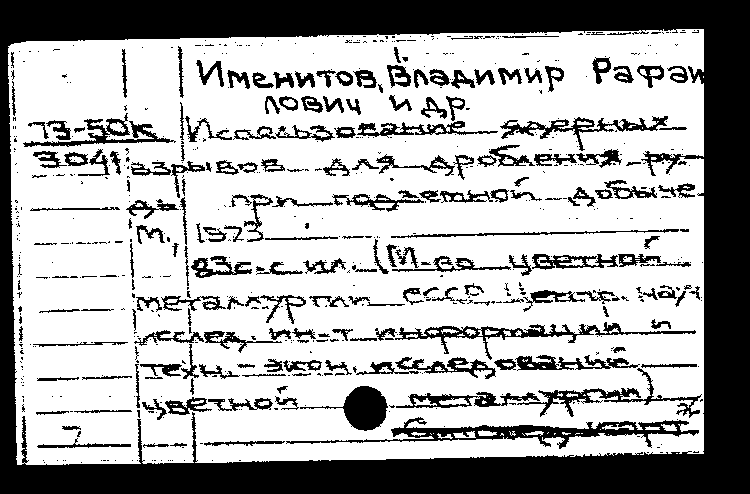 Именитов, Владимир Рафаи
лович и др.
73-50к Использование ядерных
3041 взрывов для дробления ру-
ды при подземной добыче.
М., 1973
83с. с ил. (М-во цветной
металлургии СССР. Центр. науч
исслед. ин-т информации и
техн.-экон. исследований
цветной металлургии).
7